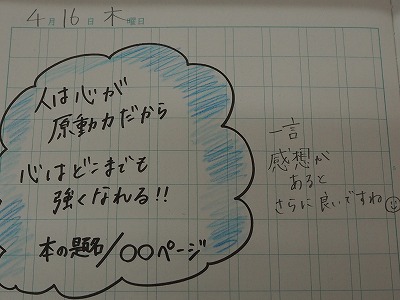 4月16日木曜日
人は心が
原動力だから
心はどこまでも
強くなれる!!
本の題名/〇〇ページ
一言
感想が
あると
さらに良いですね